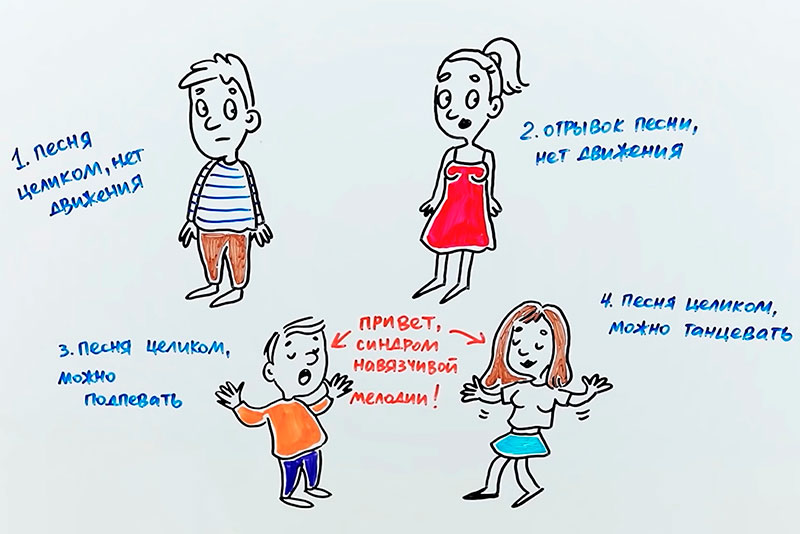 1. ПЕСНЯ
ЦЕЛИКОМ, НЕТ
ДВИЖЕНИЯ
2. ОТРЫВОК ПЕСНИ,
НЕТ ДВИЖЕНИЯ
3. ПЕСНЯ ЦЕЛИКОМ,
МОЖНО
ПОДПЕВАТЬ
ПРИВЕТ,
СИНДРОМ
НАВЯЗЧИВОЙ
МЕЛОДИИ!
4. ПЕСНЯ ЦЕЛИКОМ,
МОЖНО ТАНЦЕВАТЬ